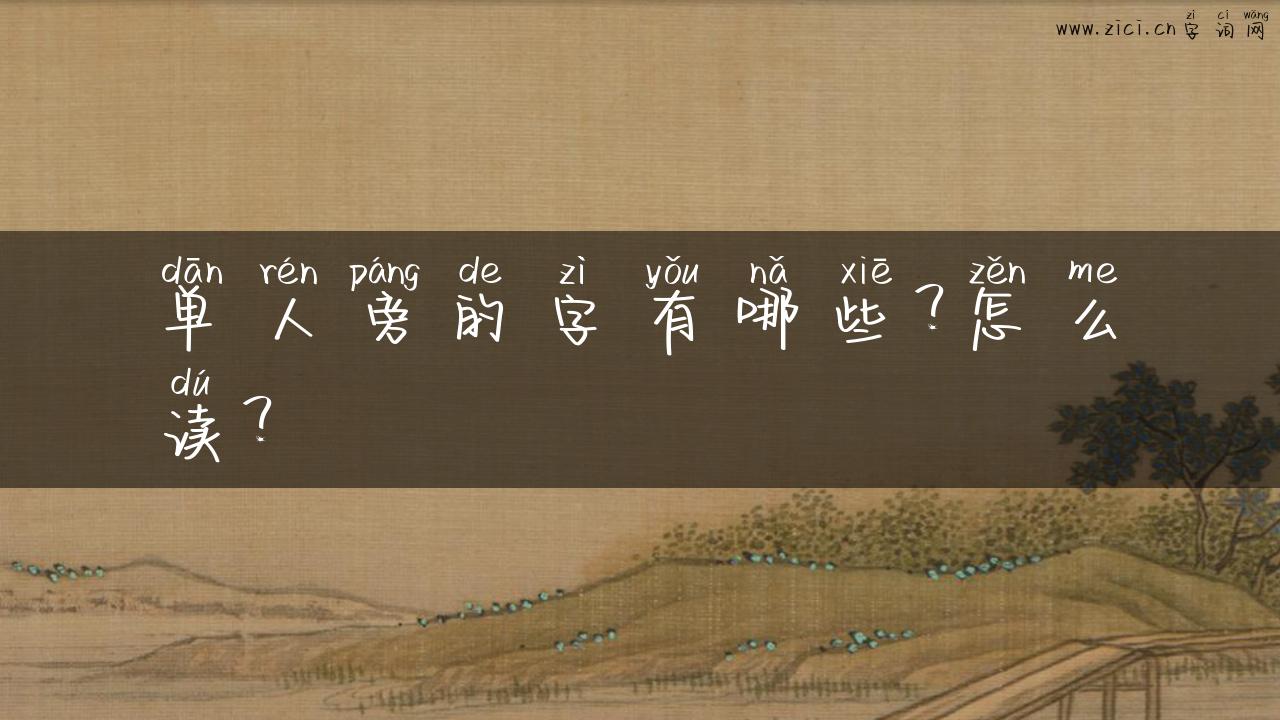 zì cí wǎng
www.zici.cn字词网
dān rén páng de zì yǒu nǎ xiē zěn me
单人旁的字有哪些?怎么
dú
读?